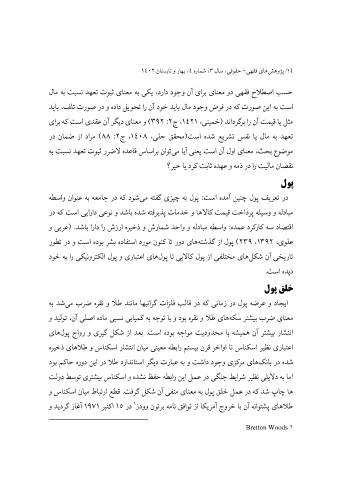 ۱۴/ پژوهش‌های فقهی- حقوقی، سال ۳، شماره ۴، بهار و تابستان ۱۴۰۲
حسب اصطلاح فقهی دو معنای برای آن وجود دارد، یکی به معنای ثبوت تعهد نسبت به مال
است به این صورت که در فرض وجود مال باید خود آن را تحویل داده و در صورت تلف، باید
مثل یا قیمت آن را برگرداند (خمینی، ۱۴۲۱، ج۲: ۳۹۲) و معنای دیگر آن عقدی است که برای
تعهد به مال یا نفس تشریع شده است(محقق حلی، ۱۴۰۸، ج۲: ۸۸) مراد از ضمان در
موضوع بحث، معنای اول آن است یعنی آیا می‌توان براساس قاعده لاضرر ثبوت تعهد نسبت به
نقصان مالیت را در ذمه و عهده ثابت کرد یا خیر؟
پول
در تعریف پول چنین آمده است: پول به چیزی گفته می‌شود که در جامعه به عنوان واسطه
مبادله و وسیله پرداخت قیمت کالاها و خدمات پذیرفته شده باشد و نوعی دارایی است که در
اقتصاد سه کارکرد عمده: واسطه مبادله و واحد شمارش و ذخیره ارزش را دارا باشد. (عربی و
علوی، ۱۳۹۲، ۲۳۹) پول از گذشته‌های دور تا کنون مورد استفاده بشر بوده است و در تطور
تاریخی آن شکل‌های مختلفی از پول کالایی تا پول‌های اعتباری و پول الکترونیکی را به خود
دیده است.
خلق پول
ایجاد و عرضه پول در زمانی که در قالب فلزات گرانبها مانند طلا و نقره ضرب می‌شد به
معنای ضرب بیشتر سکه‌های طلا و نقره بود و با توجه به کمیابی نسبی ماده اصلی آن، تولید و
انتشار بیشتر آن همیشه با محدودیت مواجه بوده است. بعد از شکل گیری و رواج پول‌های
اعتباری نظیر اسکناس تا اواخر قرن بیستم رابطه معینی میان انتشار اسکناس و طلاهای ذخیره
شده در بانک‌های مرکزی وجود داشت و به عبارت دیگر استاندارد طلا در این دوره حاکم بود
اما به دلایلی نظیر شرایط جنگی در عمل این رابطه حفظ نشده و اسکناس بیشتری توسط دولت
ها چاپ شد که در عمل خلق پول به معنای منفی آن شکل گرفت. قطع ارتباط میان اسکناس و
طلاهای پشتوانه آن با خروج آمریکا از توافق نامه برتون وودز۱ در ۱۵ اکتبر ۱۹۷۱ آغاز گردید و
Bretton Woods ۱